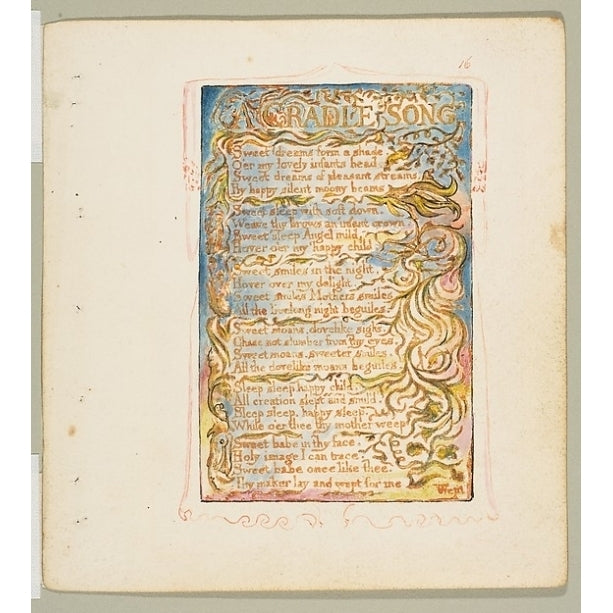 16
A CRADLE SONG
Sweet dreams form a shade
Oer my lovely infants head.
Sweet dreams of pleasant streams,
By happy silent moony beams
Sweet sleep with soft down,
Weave thy brows an infant crown.
Sweet sleep Angel mild,
Hover oer my happy child
Sweet smiles in the night,
Hover over my delight.
Sweet smiles Mothers smiles
All the livelong night beguiles.
Sweet moans, dovelike sighs,
Chase not slumber from thy eyes.
Sweet moans, sweeter smiles,
All the dovelike moans beguiles.
Sleep sleep happy child.
All creation slept and smil'd.
Sleep sleep, happy sleep,
While oer thee thy mother weep
Sweet babe in thy face,
Holy image I can trace.
Sweet babe once like thee,
Thy maker lay and wept for me
Wept